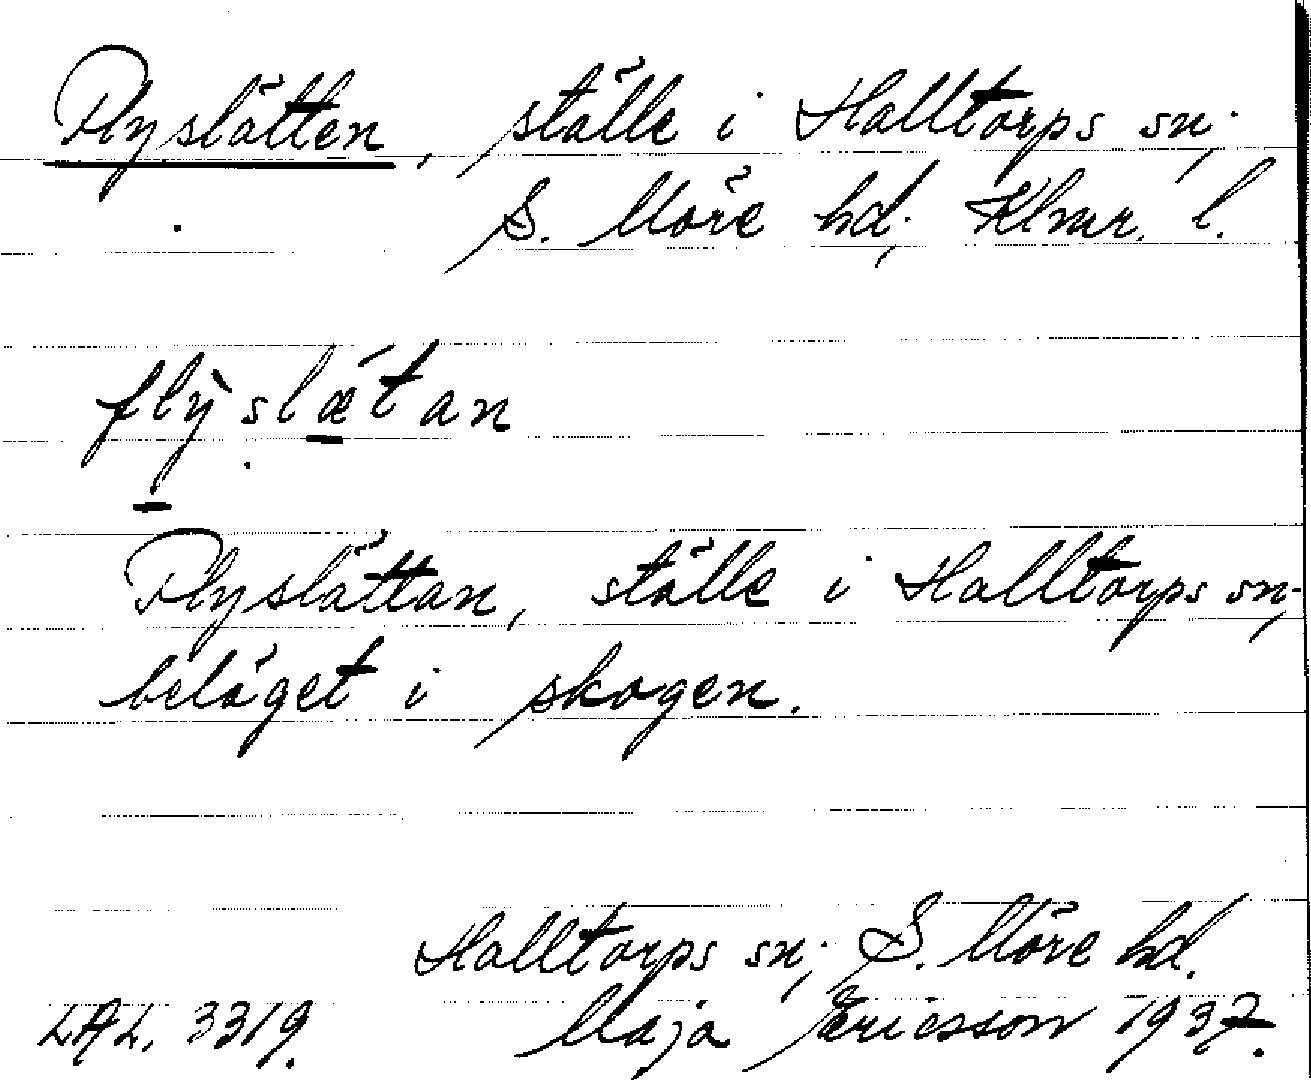 Flyslätten, ställe i Halltorps sn;
S. Möre hd; Klmr. l.
flỳslǽtan
Flyslättan, ställe i Halltorps sn;
beläget i skogen.
Halltorps sn; S. Möre hd.
LAL. 3319. Maja Ericsson 1937.